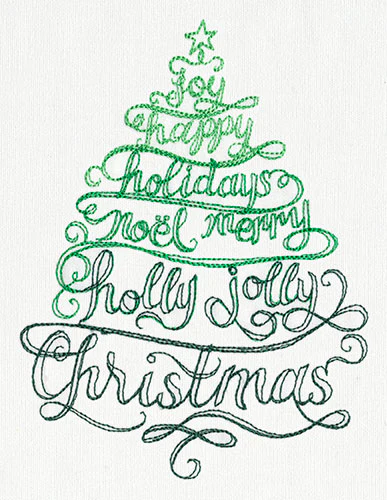 joy
happy
holidays
noël merry
holly jolly
Christmas